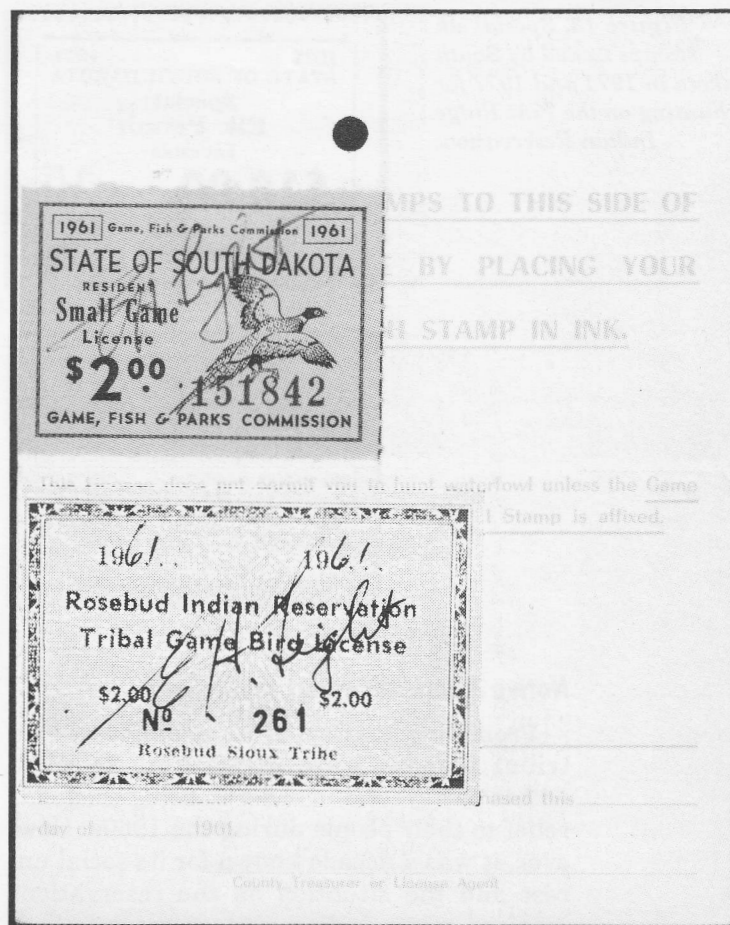 MPS TO THIS SIDE OF
BY PLACING YOUR
H STAMP IN INK.
1961 Game, Fish & Parks Commission 1961
STATE OF SOUTH DAKOTA
RESIDENT
Small Game
License
$2.00
151842
GAME, FISH & PARKS COMMISSION
This License does not permit you to hunt waterfowl unless the Game
l Stamp is affixed.
1961. 1961.
Rosebud Indian Reservation
Tribal Game Bird License
E H. Leight
$2.00 $2.00
Nº 261
Rosebud Sioux Tribe
hased this
day of 1961.
County Treasurer or License Agent